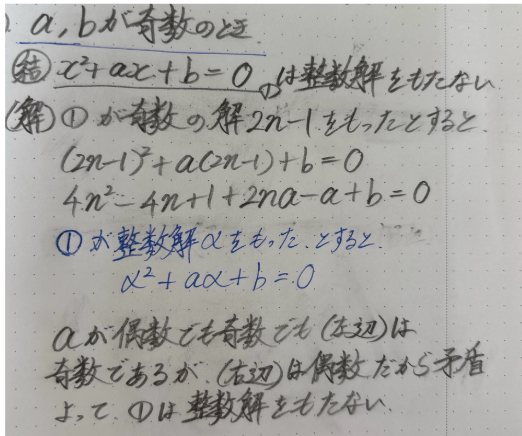 ) a, bが奇数のとき
結 x²+ax+b=0 ① は整数解をもたない
(解) ① が奇数の解 2n-1 をもったとすると
(2n-1)²+a(2n-1)+b=0
4n²-4n+1+2na-a+b=0
① が整数解αをもった とすると.
α²+aα+b=0
αが偶数でも奇数でも (左辺)は
奇数であるが、(右辺)は偶数だから矛盾
よって、①は整数解をもたない.